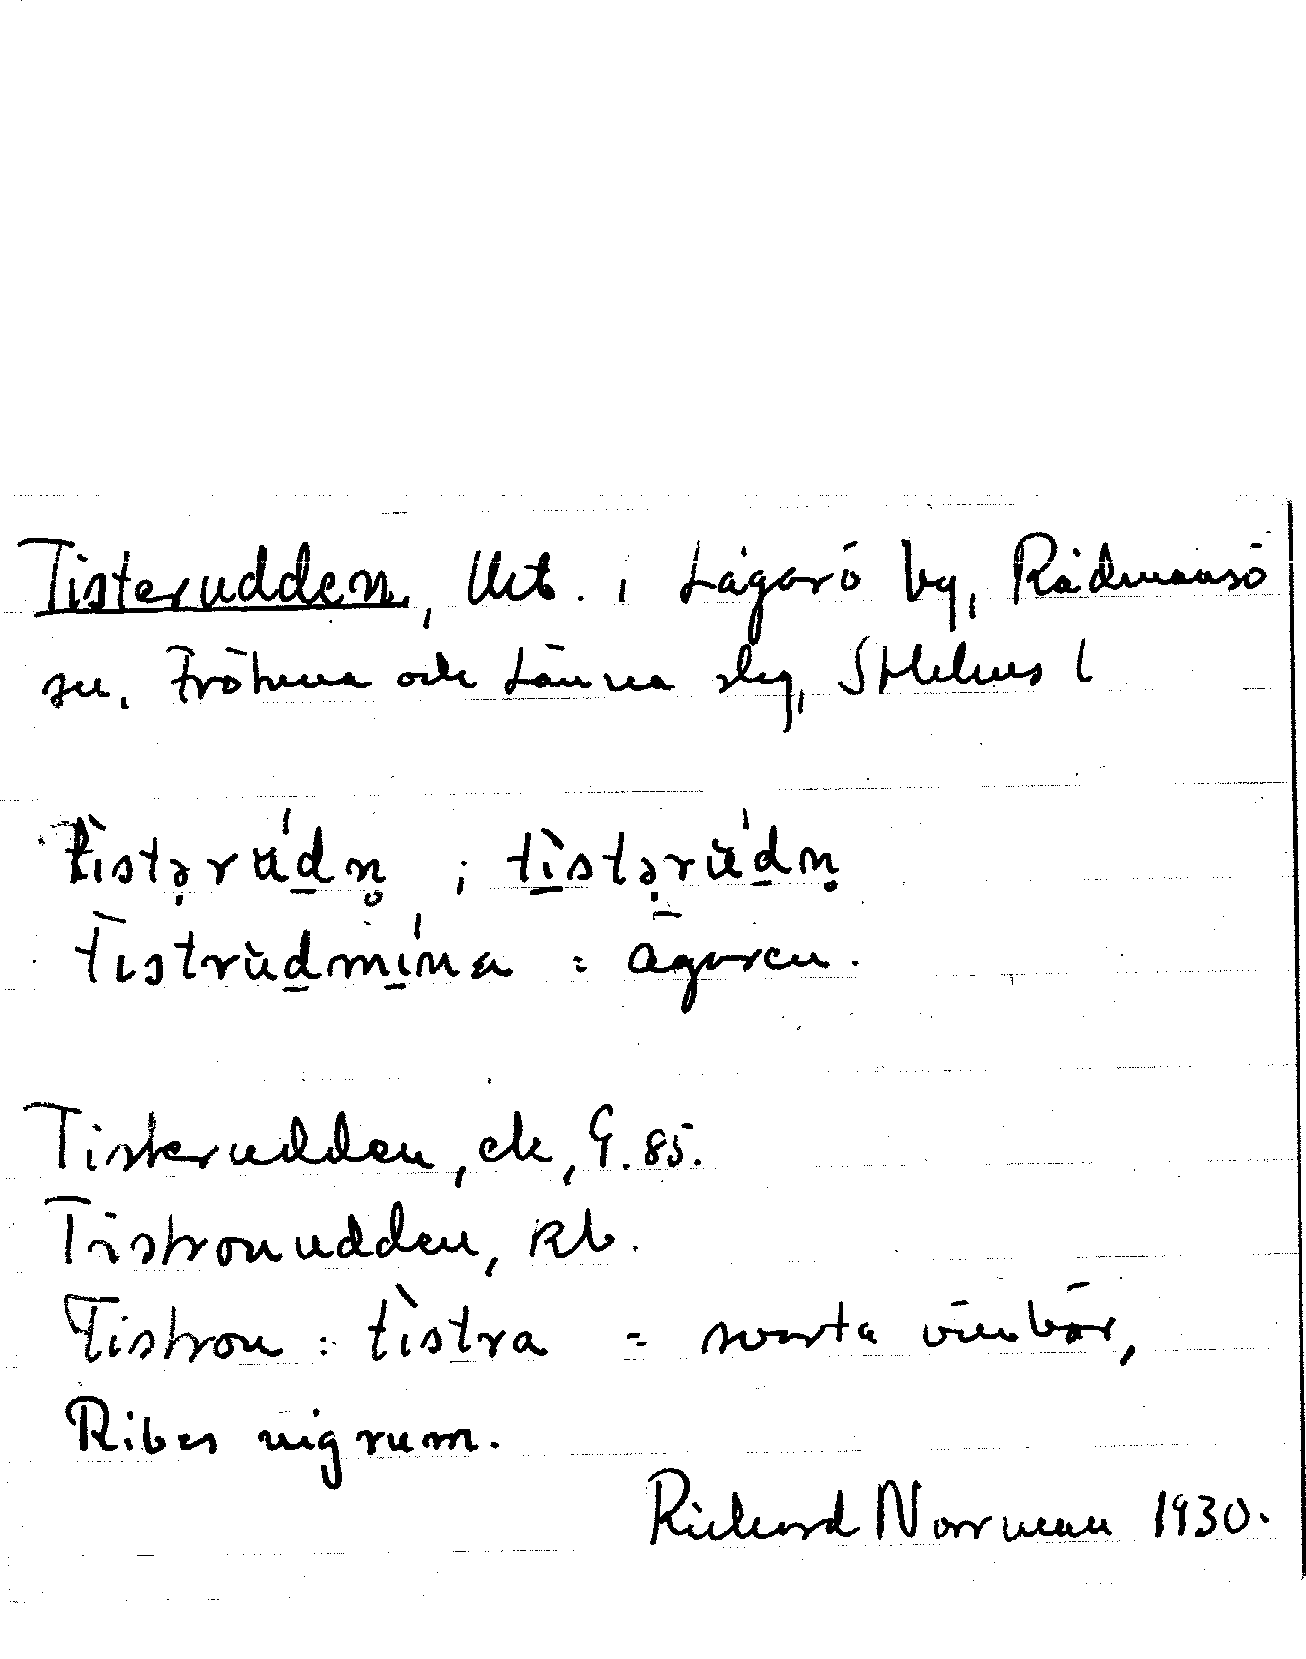 Tisterudden, Utt. i Lågarö by, Rådmansö
sn. Frötuna och Länna slg, Sthlms l
tìstərúdn̥ ; tìstərúdn̥
tistrùdmína = ägaren.
Tisterudden, ek, G. 85.
Tistronudden, Rb.
Tistron : tìstra = svarta vinbär,
Ribes nigrum.
Rickard Norrman 1930.